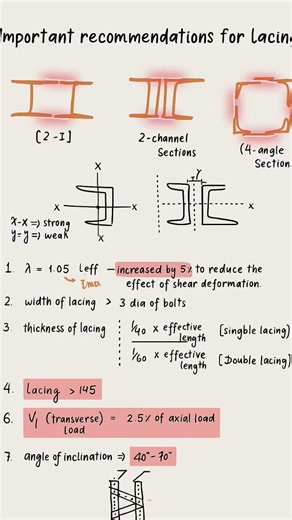 Important recommendations for lacing
[2-I]
2-channel
Sections
(4-angle
Section
x
x
x
x-x => strong
y-y => weak
x
x
1. λ = 1.05 leff — increased by 5% to reduce the
effect of shear deformation.
2. width of lacing > 3 dia of bolts
3. thickness of lacing 1/40 x effective length [singble lacing]
1/60 x effective length [Double lacing]
4. lacing > 145
6. V1 (transverse) = 2.5% of axial load
load
7. angle of inclination => 40°-70°